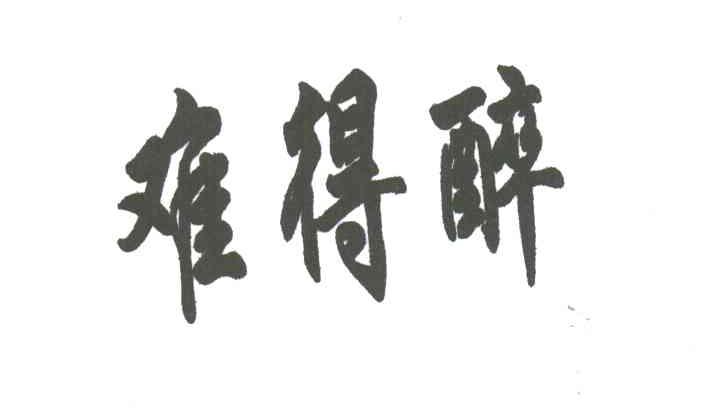 难得醉